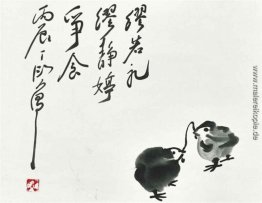 繆若
繆靜婷
爭食
丙辰丁衍庸
www.malereikopie.de